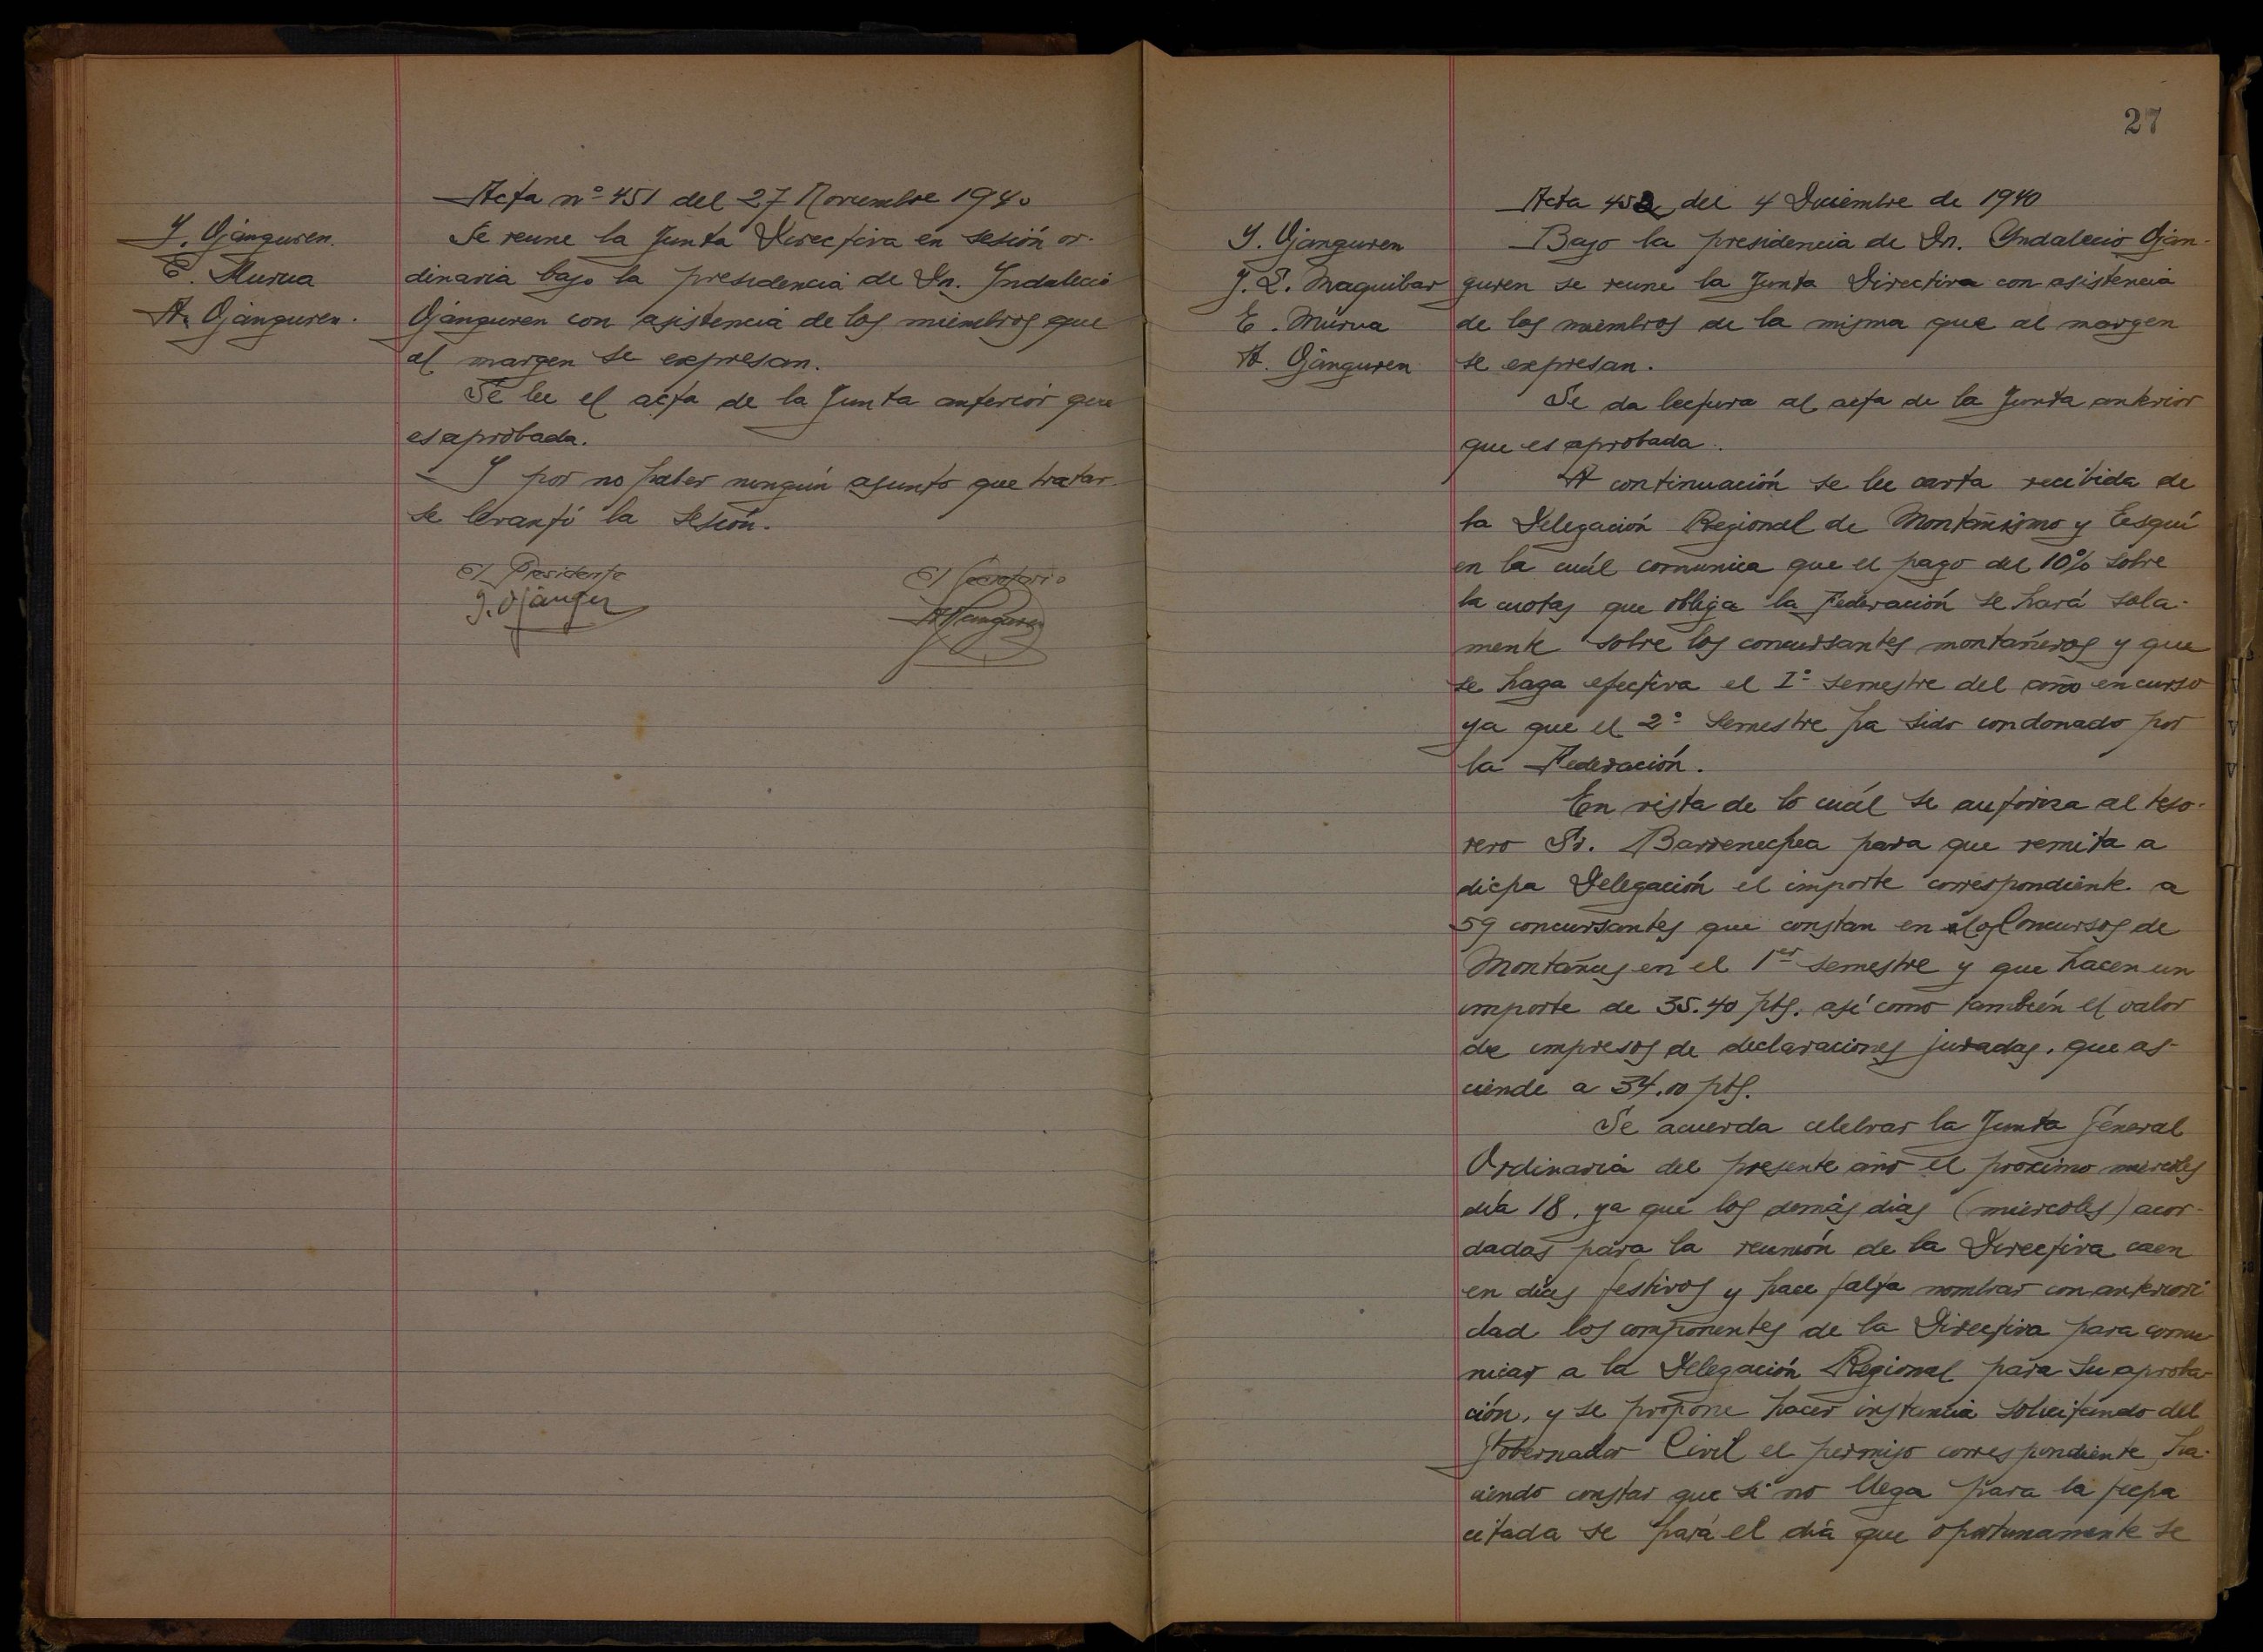 Acta nº 451 del 27 Noviembre 1940
I. Ojanguren.
E. Murua
A. Ojanguren.
Se reune la Junta Directiva en sesión or-
dinaria bajo la presidencia de Dn. Yndalecio
Ojanguren con asistencia de los miembros que
al margen se expresan.
Se lee el acta de la Junta anterior que
es aprobada.
Y por no haber ningún asunto que tratar
se levantó la sesión.
El Presidente
I. Ojanguren
El Secretario
A. Ojanguren
27
Acta 452 del 4 Diciembre de 1940
I. Ojanguren
J. L. Maquibar
E. Murua
A. Ojanguren
Bajo la presidencia de Dn. Yndalecio Ojan-
guren se reune la Junta Directiva con asistencia
de los miembros de la misma que al margen
se expresan.
Se da lectura al acta de la Junta anterior
que es aprobada.
A continuación se lee carta recibida de
la Delegación Regional de Montañismo y Esquí
en la cuál comunica que el pago del 10% sobre
la cuotas que obliga la Federación se hará sola-
mente sobre los concursantes montañeros y que
se haga efectiva el Iº semestre del año en curso
ya que el 2º semestre ha sido condonado por
la Federación.
En vista de lo cuál se autoriza al teso-
rero Sr. Barrenechea para que remita a
dicha Delegación el importe correspondiente a
59 concursantes que constan en los Concursos de
Montañas en el 1er semestre y que hacen un
importe de 35.40 pts. así como también el valor
de impresos de declaraciones juradas, que as-
ciende a 34.00 pts.
Se acuerda celebrar la Junta General
Ordinaria del presente año el proximo miercoles
día 18, ya que los demás dias (miercoles) acor-
dadas para la reunión de la Directiva caen
en días festivos y hace falta nombrar con anteriori
dad los componentes de la Directiva para comu-
nicar a la Delegación Regional para su aproba-
ción, y se propone hacer instancia solicitando del
Gobernador Civil el permiso correspondiente ha-
ciendo constar que si no llega para la fecha
citada se hará el día que oportunamente se